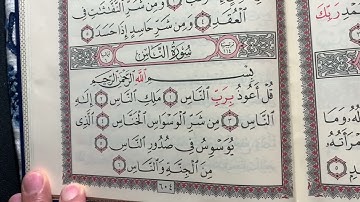 الْعُقَدِ ٤ وَمِن شَرِّ حَاسِدٍ إِذَا حَسَدَ ٥
سُورَةُ النَّاسِ
بِسْمِ اللَّهِ الرَّحْمَٰنِ الرَّحِيمِ
قُلْ أَعُوذُ بِرَبِّ النَّاسِ ١ مَلِكِ النَّاسِ ٢ إِلَٰهِ
النَّاسِ ٣ مِن شَرِّ الْوَسْوَاسِ الْخَنَّاسِ ٤ الَّذِي
يُوَسْوِسُ فِي صُدُورِ النَّاسِ ٥
مِنَ الْجِنَّةِ وَالنَّاسِ ٦
٦٠٤